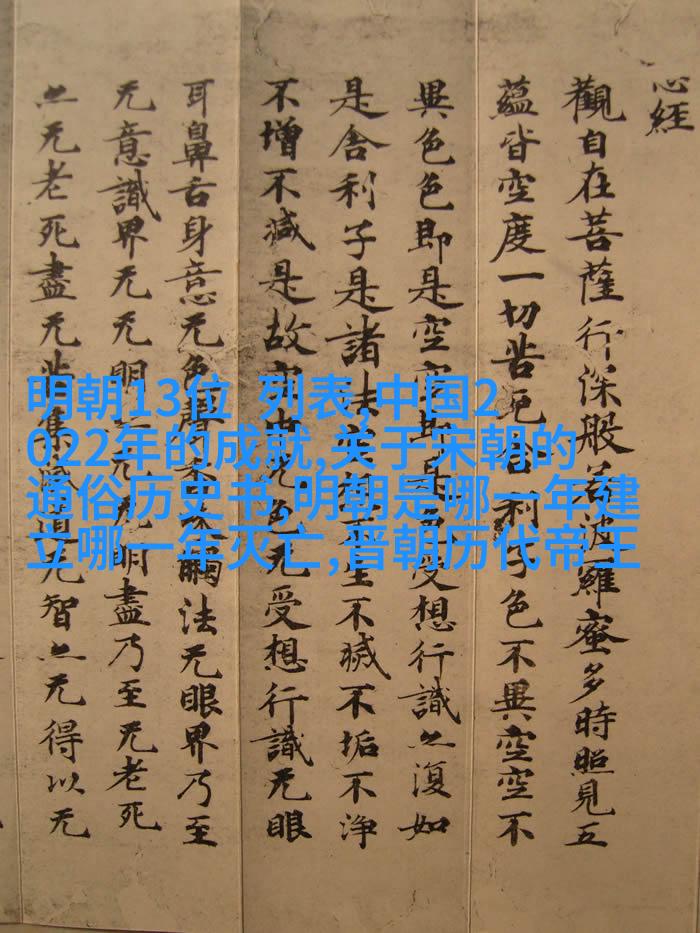 心經
觀自在菩薩行深般若波羅蜜多時照見五
蘊皆空度一切苦厄舍利子色不異空空不
異色色即是空空即是色受想行識亦復如
是舍利子是諸法空相不生不滅不垢不淨
不增不減是故空中无色无受想行識无眼
耳鼻舌身意无色聲香味觸法无眼界乃至
无意識界无无明亦无无明盡乃至无老死
亦无老死盡无苦集滅道无智亦无得以无
明朝13位 列表,中国2
022年的成就,关于宋朝的
通俗历史书,明朝是哪一年建
立哪一年灭亡,晋朝历代帝王